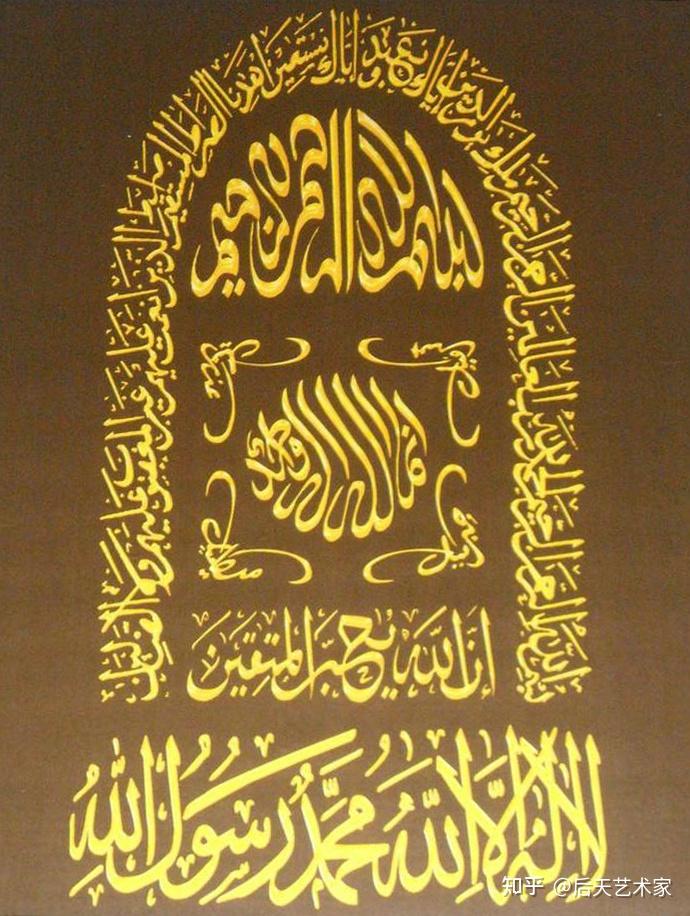 بسم الله الرحمن الرحيم الحمد لله رب العالمين الرحمن الرحيم ملك يوم الدين إياك نعبد وإياك نستعين اهدنا الصراط المستقيم صراط الذين أنعمت عليهم غير المغضوب عليهم ولا الضالين
بسم الله الرحمن الرحيم
إنما الله إله واحد
إِنَّ اللَّهَ يُحِبُّ الْمُتَّقِينَ
لا إله إلا الله محمد رسول الله
知乎 @后天艺术家